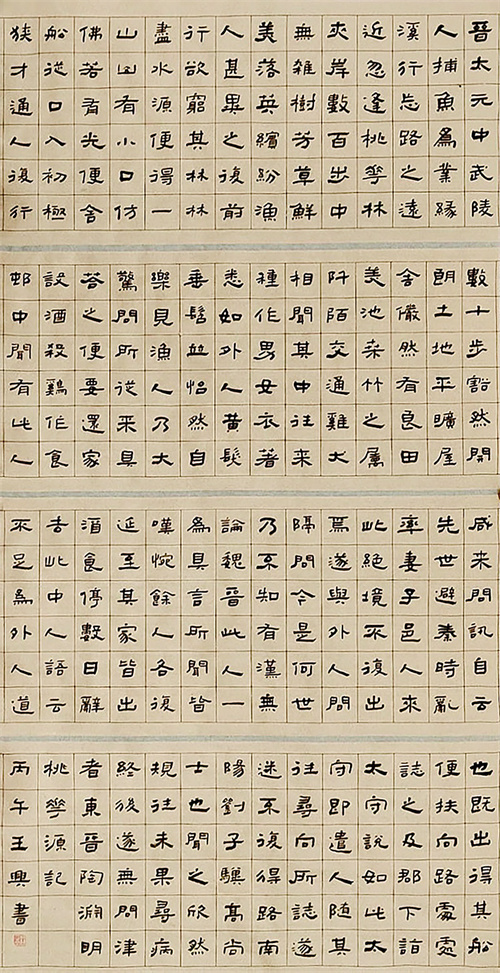 晉太元中武陵
人捕魚為業緣
溪行忘路之遠
近忽逢桃華林
夾岸數百步中
無雜樹芳草鮮
美落英繽紛漁
人甚異之復前
行欲窮其林林
盡水源便得一
山山有小口仿
佛若有光便舍
船從口入初極
狹才通人復行
數十步豁然開
朗土地平曠屋
舍儼然有良田
美池桑竹之屬
阡陌交通雞犬
相聞其中往來
種作男女衣著
悉如外人黃髮
垂髫並怡然自
樂見漁人乃大
驚問所從來具
答之便要還家
設酒殺雞作食
邨中聞有此人
咸來問訊自云
先世避秦時亂
率妻子邑人來
此絕境不復出
焉遂與外人間
隔問今是何世
乃不知有漢無
論魏晉此人一
為具言所聞皆
嘆惋餘人各復
延至其家皆出
酒食停數日辭
去此中人語云
不足為外人道
也既出得其船
便扶向路處處
誌之及郡下詣
太守說如此太
守即遣人隨其
往尋向所誌遂
迷不復得路南
陽劉子驥高尚
士也聞之欣然
規往未果尋病
終後遂無問津
者東晉陶淵明
桃華源記
丙午王興書